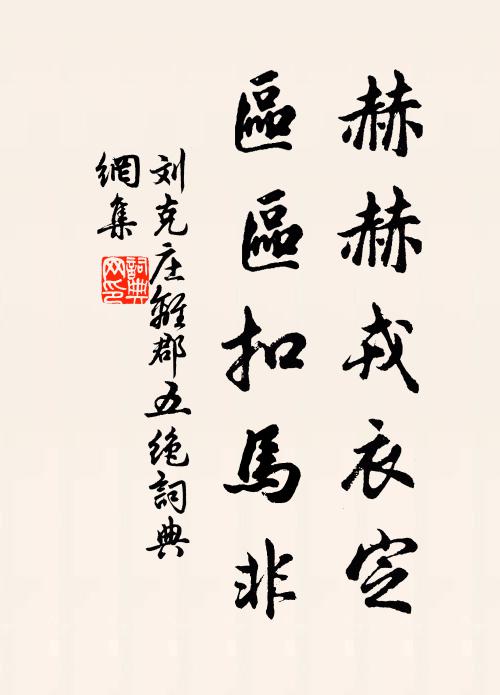 赫赫戎衣定
區區扣馬非
刘克庄離郡五绝詞典
網集
詞典網印